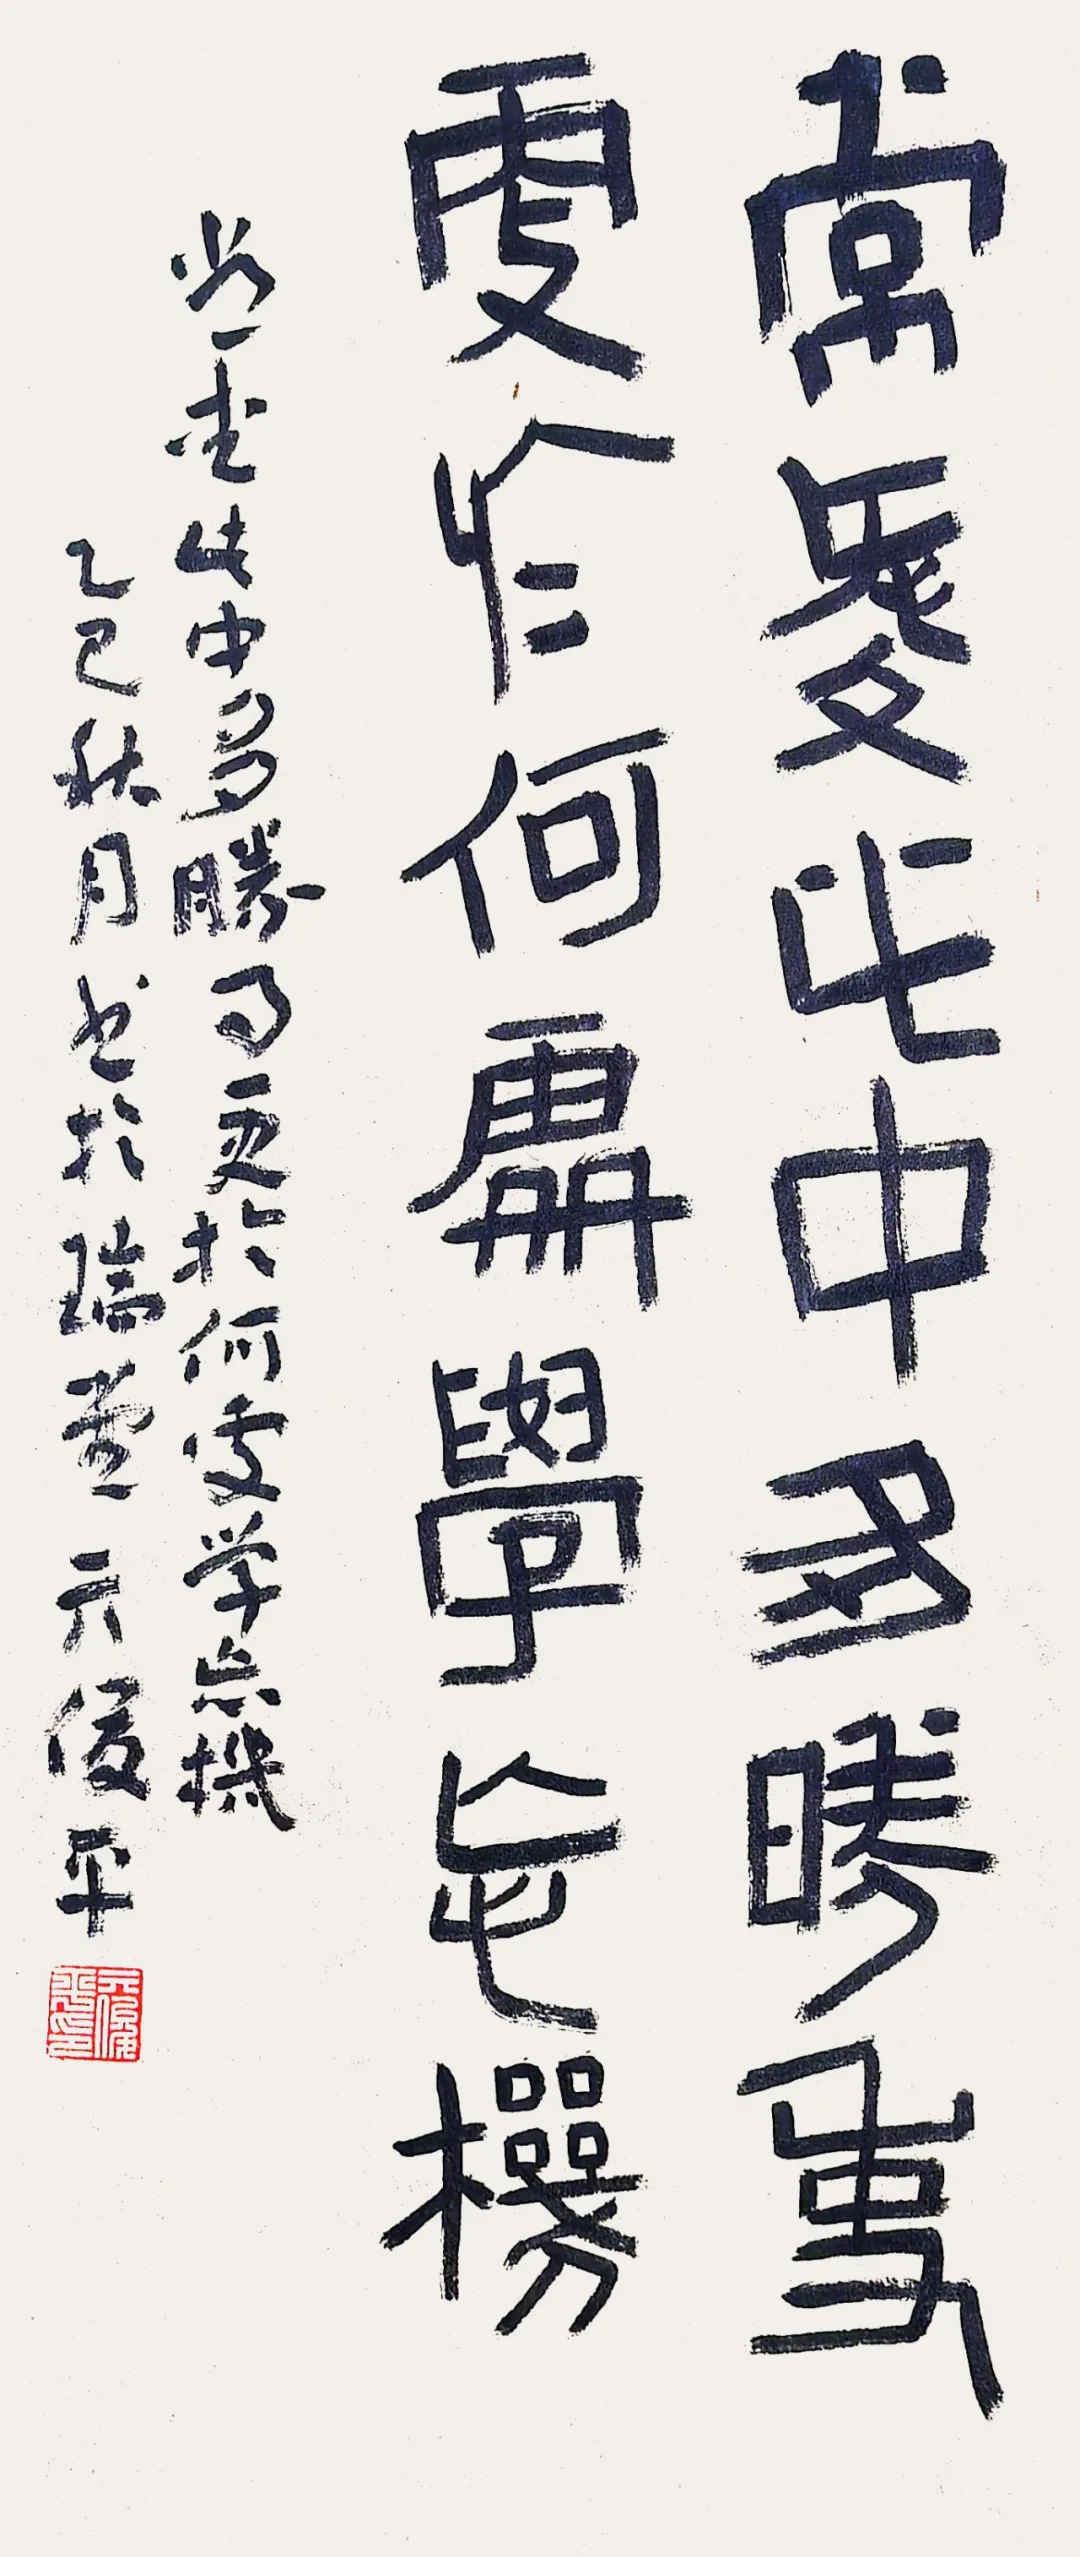 常愛此中多勝事
更於何處學忘機
常愛此中多勝事更於何處学忘機
乙巳秋月书於瑞堂元俊平